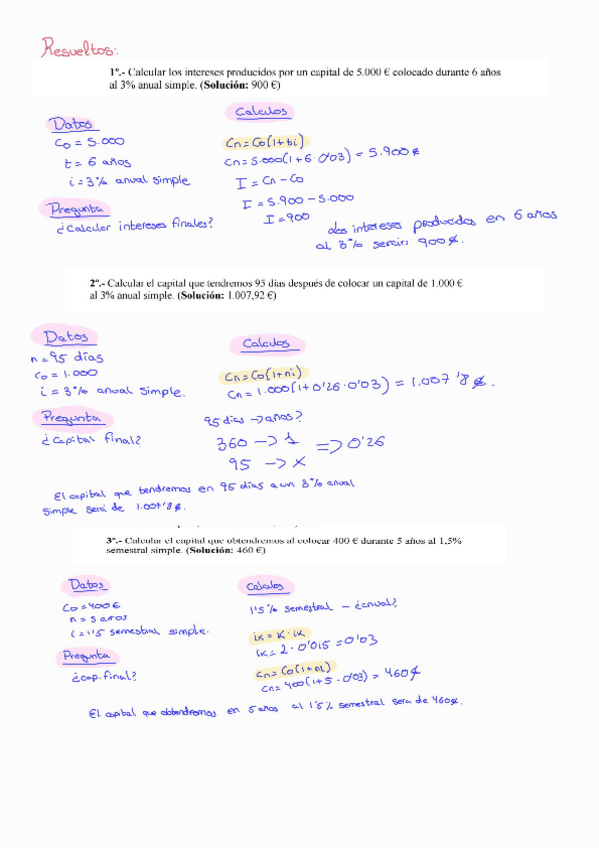 Resueltos:
1º.- Calcular los intereses producidos por un capital de 5.000 € colocado durante 6 años
al 3% anual simple. (Solución: 900 €)
Datos
Co = 5.000
t = 6 años
i = 3% anual simple
Pregunta
¿Calcular intereses finales?
Calculos
Cn = Co(1+ti)
Cn = 5.000(1+6·0'03) = 5.900€
I = Cn - Co
I = 5.900 - 5.000
I = 900
Los intereses producidos en 6 años
al 3% serán 900€.
2º.- Calcular el capital que tendremos 95 días después de colocar un capital de 1.000 €
al 3% anual simple. (Solución: 1.007,92 €)
Datos
n = 95 días
Co = 1.000
i = 3% anual simple.
Pregunta
¿Capital final?
Calculos
Cn = Co(1+ni)
Cn = 1.000(1+0'26·0'03) = 1.007'8€.
95 días -> años?
360 -> 1
95 -> x
=> 0'26
El capital que tendremos en 95 días a un 3% anual
simple será de 1.007'8€.
3º.- Calcular el capital que obtendremos al colocar 400 € durante 5 años al 1,5%
semestral simple. (Solución: 460 €)
Datos
Co = 400€
n = 5 años
i = 1'5 semestral simple.
Pregunta
¿Cap. final?
Calculos
1'5% semestral - ¿anual?
ik = K · ik
ik = 2 · 0'015 = 0'03
Cn = Co(1+ni)
Cn = 400(1+5·0'03) = 460€
El capital que obtendremos en 5 años al 1'5% semestral será de 460€.